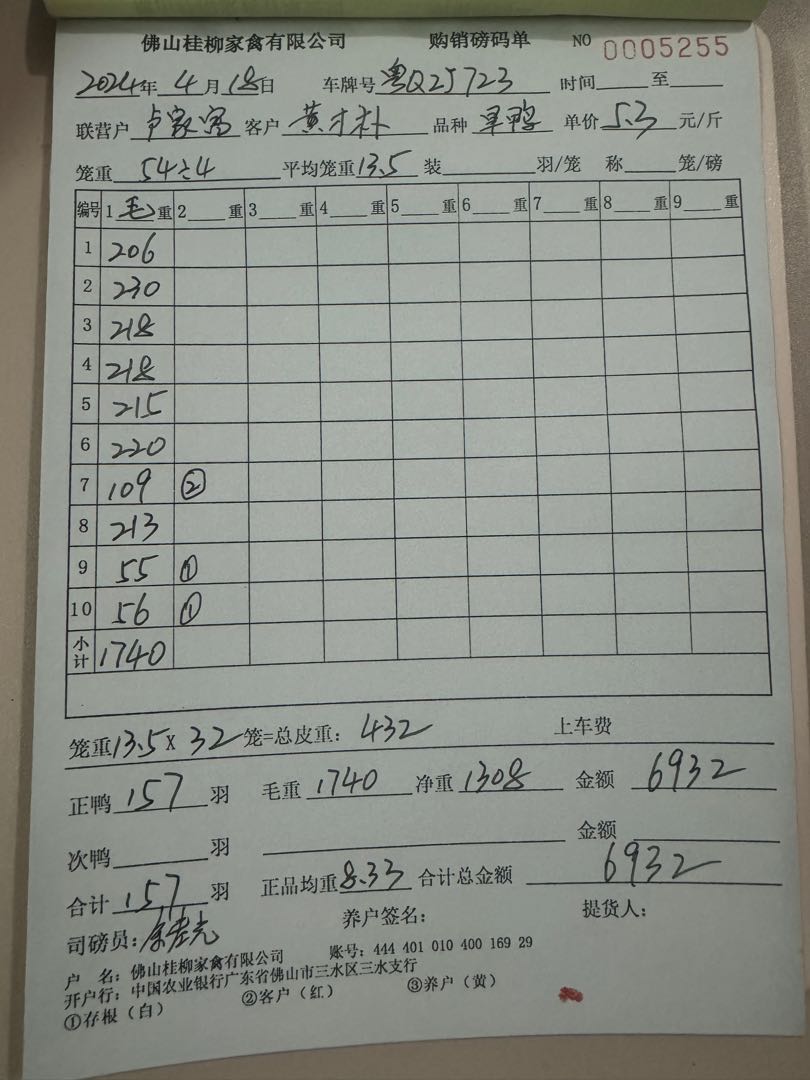 佛山桂柳家禽有限公司 购销磅码单 NO 0005255
2024年 4月 18日 车牌号 粤Q25723 时间 至
联营户 卢家富 客户 黄才朴 品种 单价 5.3 元/斤
笼重 54÷4 平均笼重 13.5 装 羽/笼 称 笼/磅
编号 1 毛重 2 重 3 重 4 重 5 重 6 重 7 重 8 重 9 重
1 206
2 230
3 218
4 218
5 215
6 220
7 109 ②
8 213
9 55 ①
10 56 ①
小计 1740
笼重 13.5 X 32 笼=总皮重: 432 上车费
正鸭 157 羽 毛重 1740 净重 1308 金额 6932
次鸭 羽 金额
合计 157 羽 正品均重 8.33 合计总金额 6932
司磅员: 养户签名: 提货人:
户 名: 佛山桂柳家禽有限公司 账号: 444 401 010 400 169 29
开户行: 中国农业银行广东省佛山市三水区三水支行
①存根(白) ②客户(红) ③养户(黄)